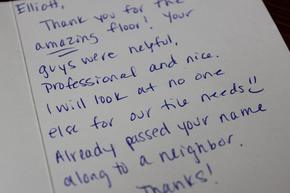 Elliott,
Thank you for the
amazing floor! Your
guys were helpful,
professional and nice.
I will look at no one
else for our tile needs
Already passed your name
along to a neighbor.
Thanks!